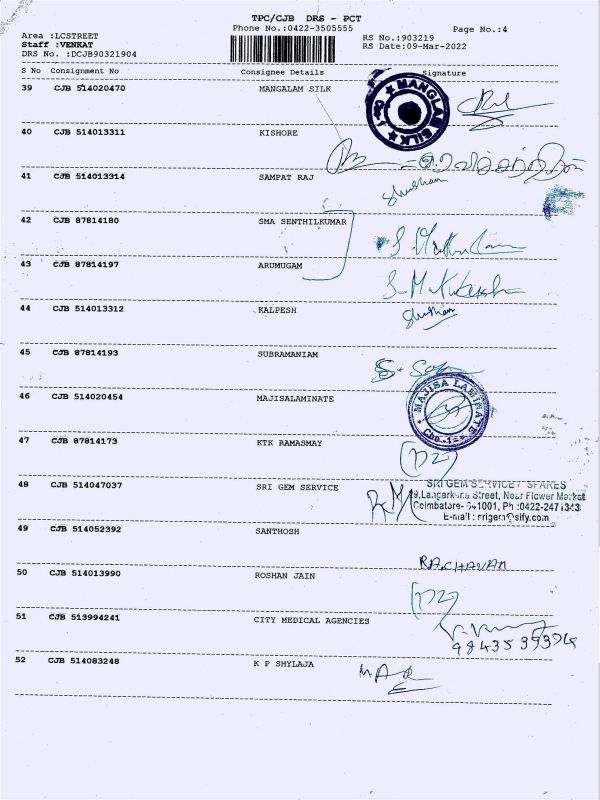 TPC/CJB DRS - PCT
Phone No.:0422-3505555
Page No.:4
Area :LCSTREET
RS No.:903219
Staff :VENKAT
RS Date:09-Mar-2022
DRS No. :DCJB90321904
S No Consignment No Consignee Details Signature
39 CJB 514020470 MANGALAM SILK
MANGLAM SILK
40 CJB 514013311 KISHORE
41 CJB 514013314 SAMPAT RAJ
Shubham
42 CJB 87814180 SMA SENTHILKUMAR
43 CJB 87814197 ARUMUGAM
44 CJB 514013312 KALPESH
Shubham
45 CJB 87814193 SUBRAMANIAM
46 CJB 514020454 MAJISALAMINATE
MAJISA LAMINATE
47 CJB 87814173 KTK RAMASMAY
48 CJB 514047037 SRI GEM SERVICE
SRI GEM SERVICE / SPARES
Street, Near Flower Market
Coimbatore- 641001, Ph :0422-2471343
E-mail : srigem@sify.com
49 CJB 514052392 SANTHOSH
RAGHAVAN
50 CJB 514013990 ROSHAN JAIN
51 CJB 513994241 CITY MEDICAL AGENCIES
52 CJB 514083248 K P SHYLAJA